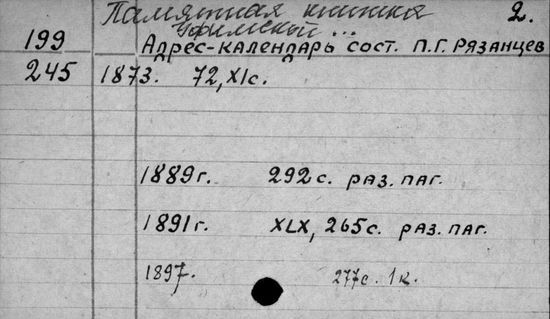 Памятная книжка 2.
Уфимской ...
199 Адрес-календарь сост. П.Г. Рязанцев
245 1873. 72, XI с.
1889 г. 292 с. раз. паг.
1891 г. XLX, 265 с. раз. паг.
1897. 277 с. 1 к.